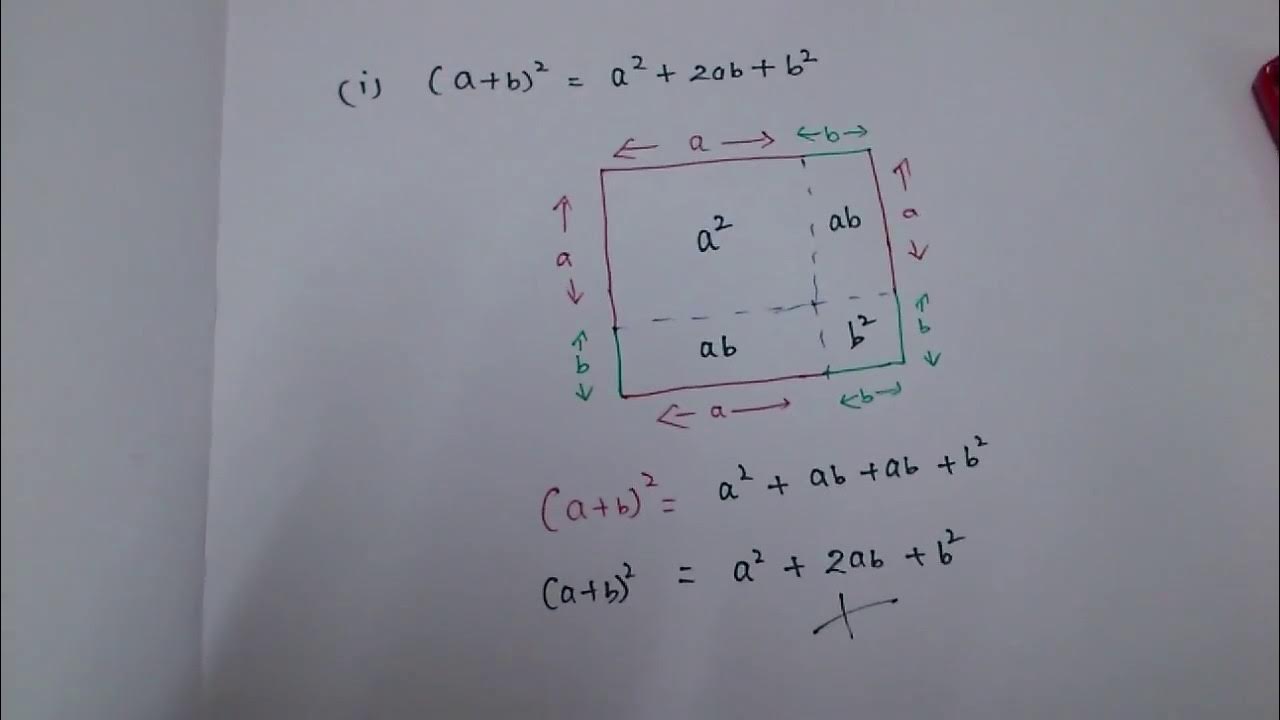 (i) (a+b)² = a² + 2ab + b²
← a → ←b→
↑ a ↓
a²
ab
↑ a ↓
↑ b ↓
ab
b²
↑ b ↓
← a → ←b→
(a+b)² = a² + ab + ab + b²
(a+b)² = a² + 2ab + b²